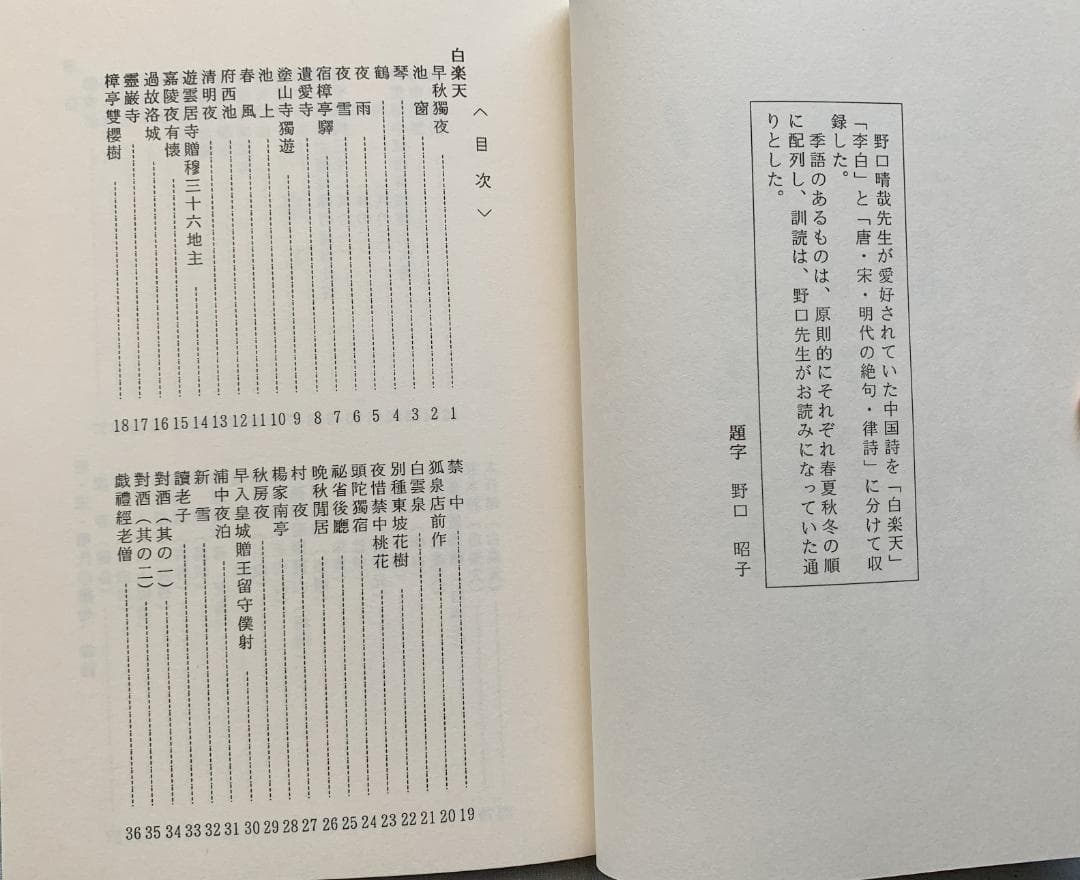 野口晴哉先生が愛好されていた中国詩を「白楽天」
「李白」と「唐・宋・明代の絶句・律詩」に分けて収
録した。
季語のあるものは、原則的にそれぞれ春夏秋冬の順
に配列し、訓読は、野口先生がお読みになっていた通
りとした。
題字 野口 昭子
〈目次〉
白楽天
早秋獨夜 1
池窗 2
琴 3
鶴 4
夜雨 5
夜雪 6
宿樟亭驛 7
遺愛寺 8
塗山寺獨遊 9
池上 10
春風 11
府西池 12
清明夜 13
遊雲居寺贈穆三十六地主 14
嘉陵夜有懐 15
過故洛城 16
靈巖寺 17
樟亭雙櫻樹 18
禁中 19
狐泉店前作 20
白雲泉 21
別種東坡花樹 22
夜惜禁中桃花 23
頭陀獨宿 24
祕省後廳 25
晩秋閒居 26
村夜 27
楊家南亭 28
秋房夜 29
早入皇城贈王留守僕射 30
浦中夜泊 31
新雪 32
讀老子 33
對酒(其の一) 34
對酒(其の二) 35
戯禮經老僧 36